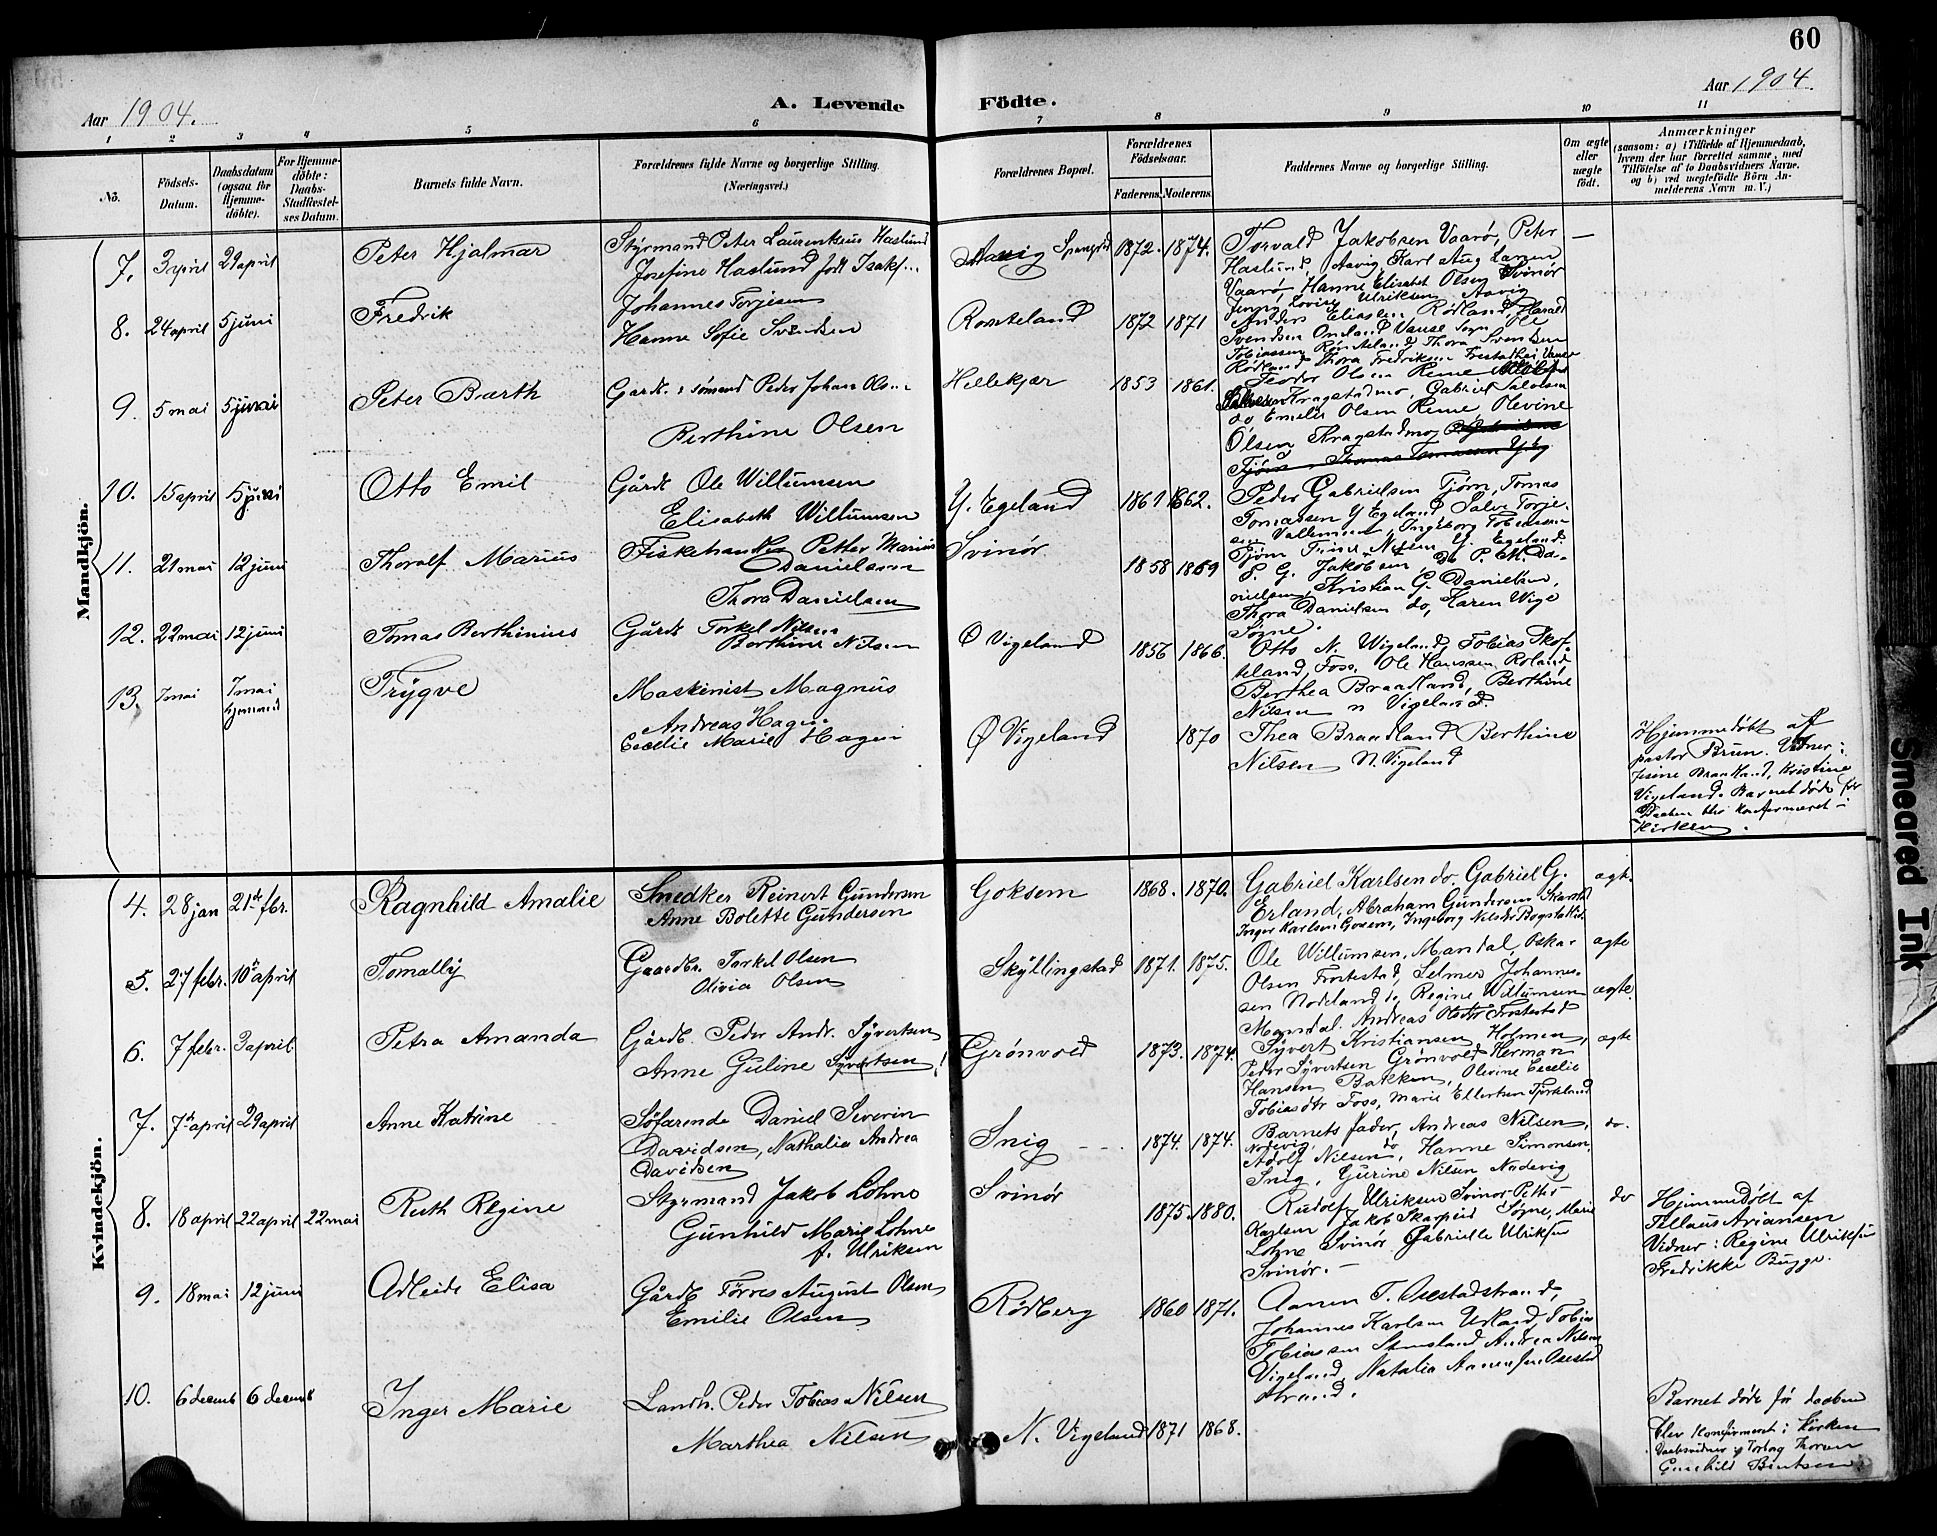 60
Aar 1904.
A. Levende Födte.
Aar 1904.
1 2 3 4 5 6 7 8 9 10 11
No.
Födsels-Datum.
Daabsdatum (ogsaa for Hjemme-döbte).
For Hjemme-döbte: Daabs-Stadfæstel-ses Datum.
Barnets fulde Navn.
Forældrenes fulde Navne og borgerlige Stilling.
(Næringsvei.)
Forældrenes Bopæl.
Forældrenes Födselsaar.
Faderens. Moderens.
Faddernes Navne og borgerlige Stilling.
Om ægte eller uægte födt.
Anmærkninger
(saasom: a) i Tilfælde af Hjemmedaab,
hvem der har forrettet samme, med
Tilföielse af to Daabsvidners Navne,
og b) ved uegtefödte Börn An-
melderens Navn m. V.)
Mandkjön.
7. 3 april 29 april Peter Hjalmar
Styrmand Peter Laurentseus Haslund
Josefine Haslund födt Isaks...
Aavig Spangereid 1872. 1874.
Torvald Jakobsen Vaarø, Peter
Haslund, Aavig, Karl Aug Larsen
Vaarø, Hanne Elisabet Olsen Svinør
Jenny Lovise Ulriksen Aavig
8. 24 april 5 juni Fredrik
Johannes Torjesen
Hanne Sofie Svendsen
Rosteland 1872 1871
Anders Eliassen Rødland, Harald
Svendsen Omland Vanse Sogn Ole
Tobiassen Rønteland Thora Svendsen
Rødland Thora Fredriksen Frestadhei Vanse
9. 5 mai 5 juni Peter Barth
Gardb. & sømand Peder Johan Olsen
Berthine Olsen
Hellekjær 1853 1861.
Teodor Olsen Reme
Kragstadmo, Gabriel Salvesen
do, Emelie Olsen Reme, Olevine
Olsen Kragstadmo
Tjørn Thomas Tomassen Y. Eg
10. 15 april 5 juni Otto Emil
Gårdb. Ole Willumsen
Elisabeth Willumsen
Y. Egeland 1861 1862.
Peder Gabrielsen Tjørn, Tomas
Tomassen Y Egeland Salve Torje-
sen Vallemoen, Ingeborg Tobiassen
Tjørn Trine Nilsen Y. Egeland.
11. 21 mai 12 juni Thoralf Marius
Fiskehandler Petter Marius
Danielsen
Thora Danielsen
Svinør 1858 1859
S. G. Jakobsen, do P. M. Da-
nielsen, Kristian G. Danielsen,
Thora Danielsen do, Karen Wige
Søgne.
12. 22 mai 12 juni Tomas Berthinius
Gårdb. Torkel Nilsen
Berthine Nilsen
Ø Vigeland 1856 1866.
Otto N. Wigeland, Tobias Skof-
teland, Foss, Ole Hanssen Roland,
Berthea Braadland, Berthine
Nilsen n Vigeland.
13. 7 mai 7 mai hjemmed Trygve
Maskinist Magnus
Andreas Hagen
Cecelie Marie Hagen
Ø Vigeland 1870
Thea Braadland Berthine
Nilsen N. Vigeland
Hjemmedøbt af
pastor Brun. Vidner:
Jesine Braadland, Kristine
Vigeland. Barnet døde før
Daaben blev konfirmeret i
Kirken.
Kvindekjön.
4. 28 jan 21de febr. Ragnhild Amalie
Snedker Reinert Gundersen
Anne Bolette Gundersen
Goksem 1868. 1870.
Gabriel Karlsen do. Gabriel G.
Erland, Abraham Gundersen Skarstad
Inger Karlsen Gosem, Ingeborg Nilsdtr Bogstad
ægte
5. 27 febr. 10de april Tomally
Gaardbr. Torkel Olsen
Olivia Olsen
Skyllingstad 1871. 1875.
Ole Willumsen, Mandal Oskar
Olsen Frostestad, Selmer Johannes-
sen Nodeland do, Regine Willumsen
Mandal. Andreas Olsen Frostestad
ægte
ægte.
6. 7 febr. 3 april Petra Amanda
Gårdb. Peder Andr. Syvertsen
Anne Guline Syvertsen!
Grønvold 1873. 1874.
Syvert Kristiansen Holmen,
Peder Syvertsen Grønvold Herman
Hansen Bakken, Olevine Cecelie
Tobiasdtr Foss, Marie Ellertsen Tjorteland
ægte
7. 7de april 29 april Anne Katrine
Søfarende Daniel Severin
Davidsen, Nathalia Andrea
Davidsen
Snig 1874. 1874.
Barnets fader, Andreas Nilsen,
Nodevig,
Adolf Nilsen, do Hanne Simonsen,
Snig, Gurine Nilsen Nodevig
do.
8. 18 april 22 april 22 mai Ruth Regine
Styrmand Jakob Lohne
Gunhild Marie Lohne
f. Ulriksen
Svinør 1875. 1880.
Rudolf Ulriksen Svinør Petter
Karlsen Jakob Skarpeid Søgne, Marie
Lohne Svinør Gabrielle Ulriksen
Svinør.
do
Hjemmedøbt af
Tellaus Ariansen
Vidner: Regine Ulriksen
Fredrikke Bugge.
9. 18 mai 12 juni Adleide Elisa
Gårdb. Törres August Olsen
Emilie Olsen
Rödberg 1860 1871.
Aanen T. Osestadstrand,
Johannes Karlsen Udland, Tobias
Tobiassen Stensland Andrea Nilsen
Vigeland, Natalia Aanensen Osestad
strand.
10. 6 decemb 6 decemb Inger Marie
Landh. Peder Tobias Nilsen
Marthea Nilsen
N. Vigeland 1871 1868.
Barnet døde før daaben
blev konfirmeret i Kirken
Daabsvidner
Gunhild Bentsen.
Smeared Ink